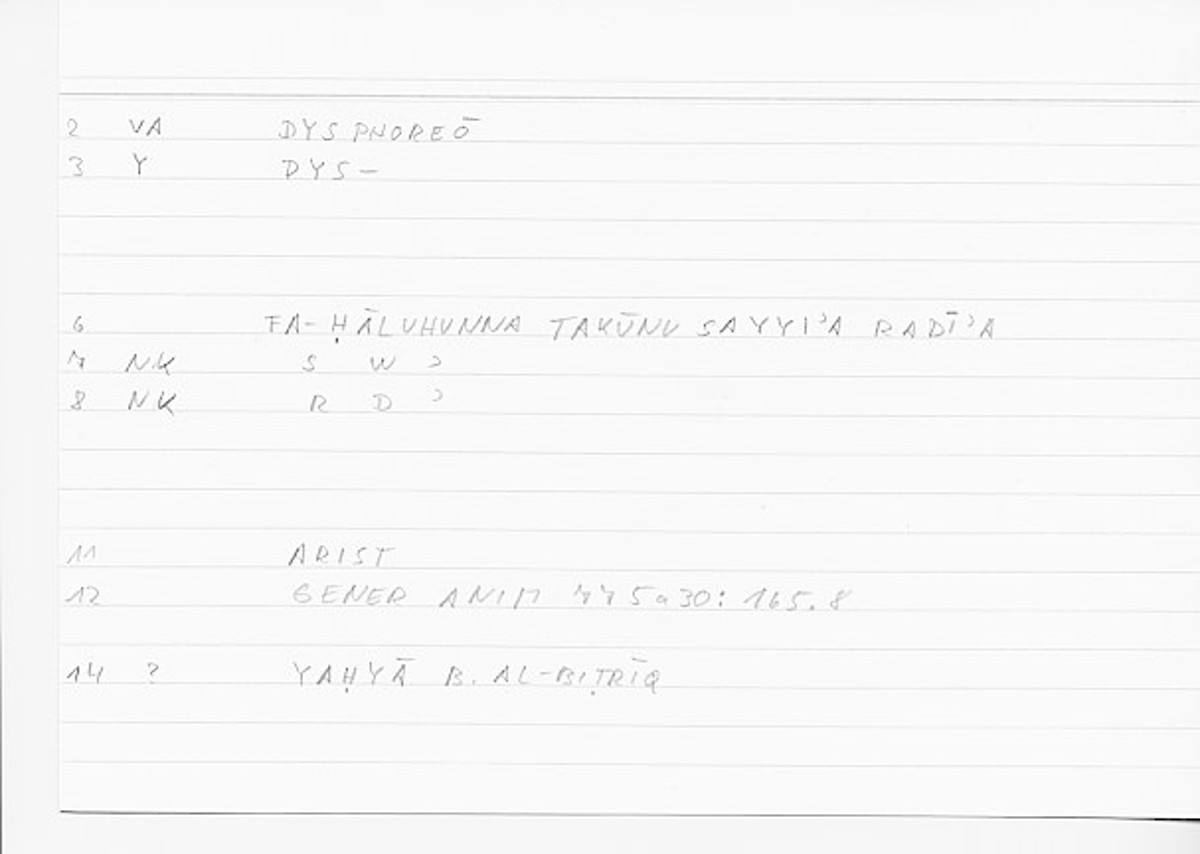 2 VA DYSPHOREŌ
3 Y DYS-
6 FA-ḤĀLUHUNNA TAKŪNU SAYYIʾA RADĪʾA
7 NK S W ʾ
8 NK R D ʾ
11 ARIST
12 GENER ANIM 775a30: 165.8
14 ? YAḤYĀ B. AL-BIṬRĪQ